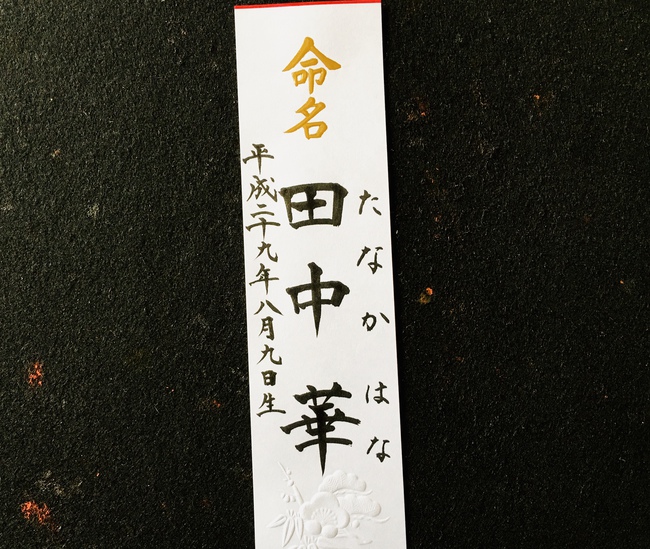 命名
たなか はな
田中 華
平成二十九年八月九日生